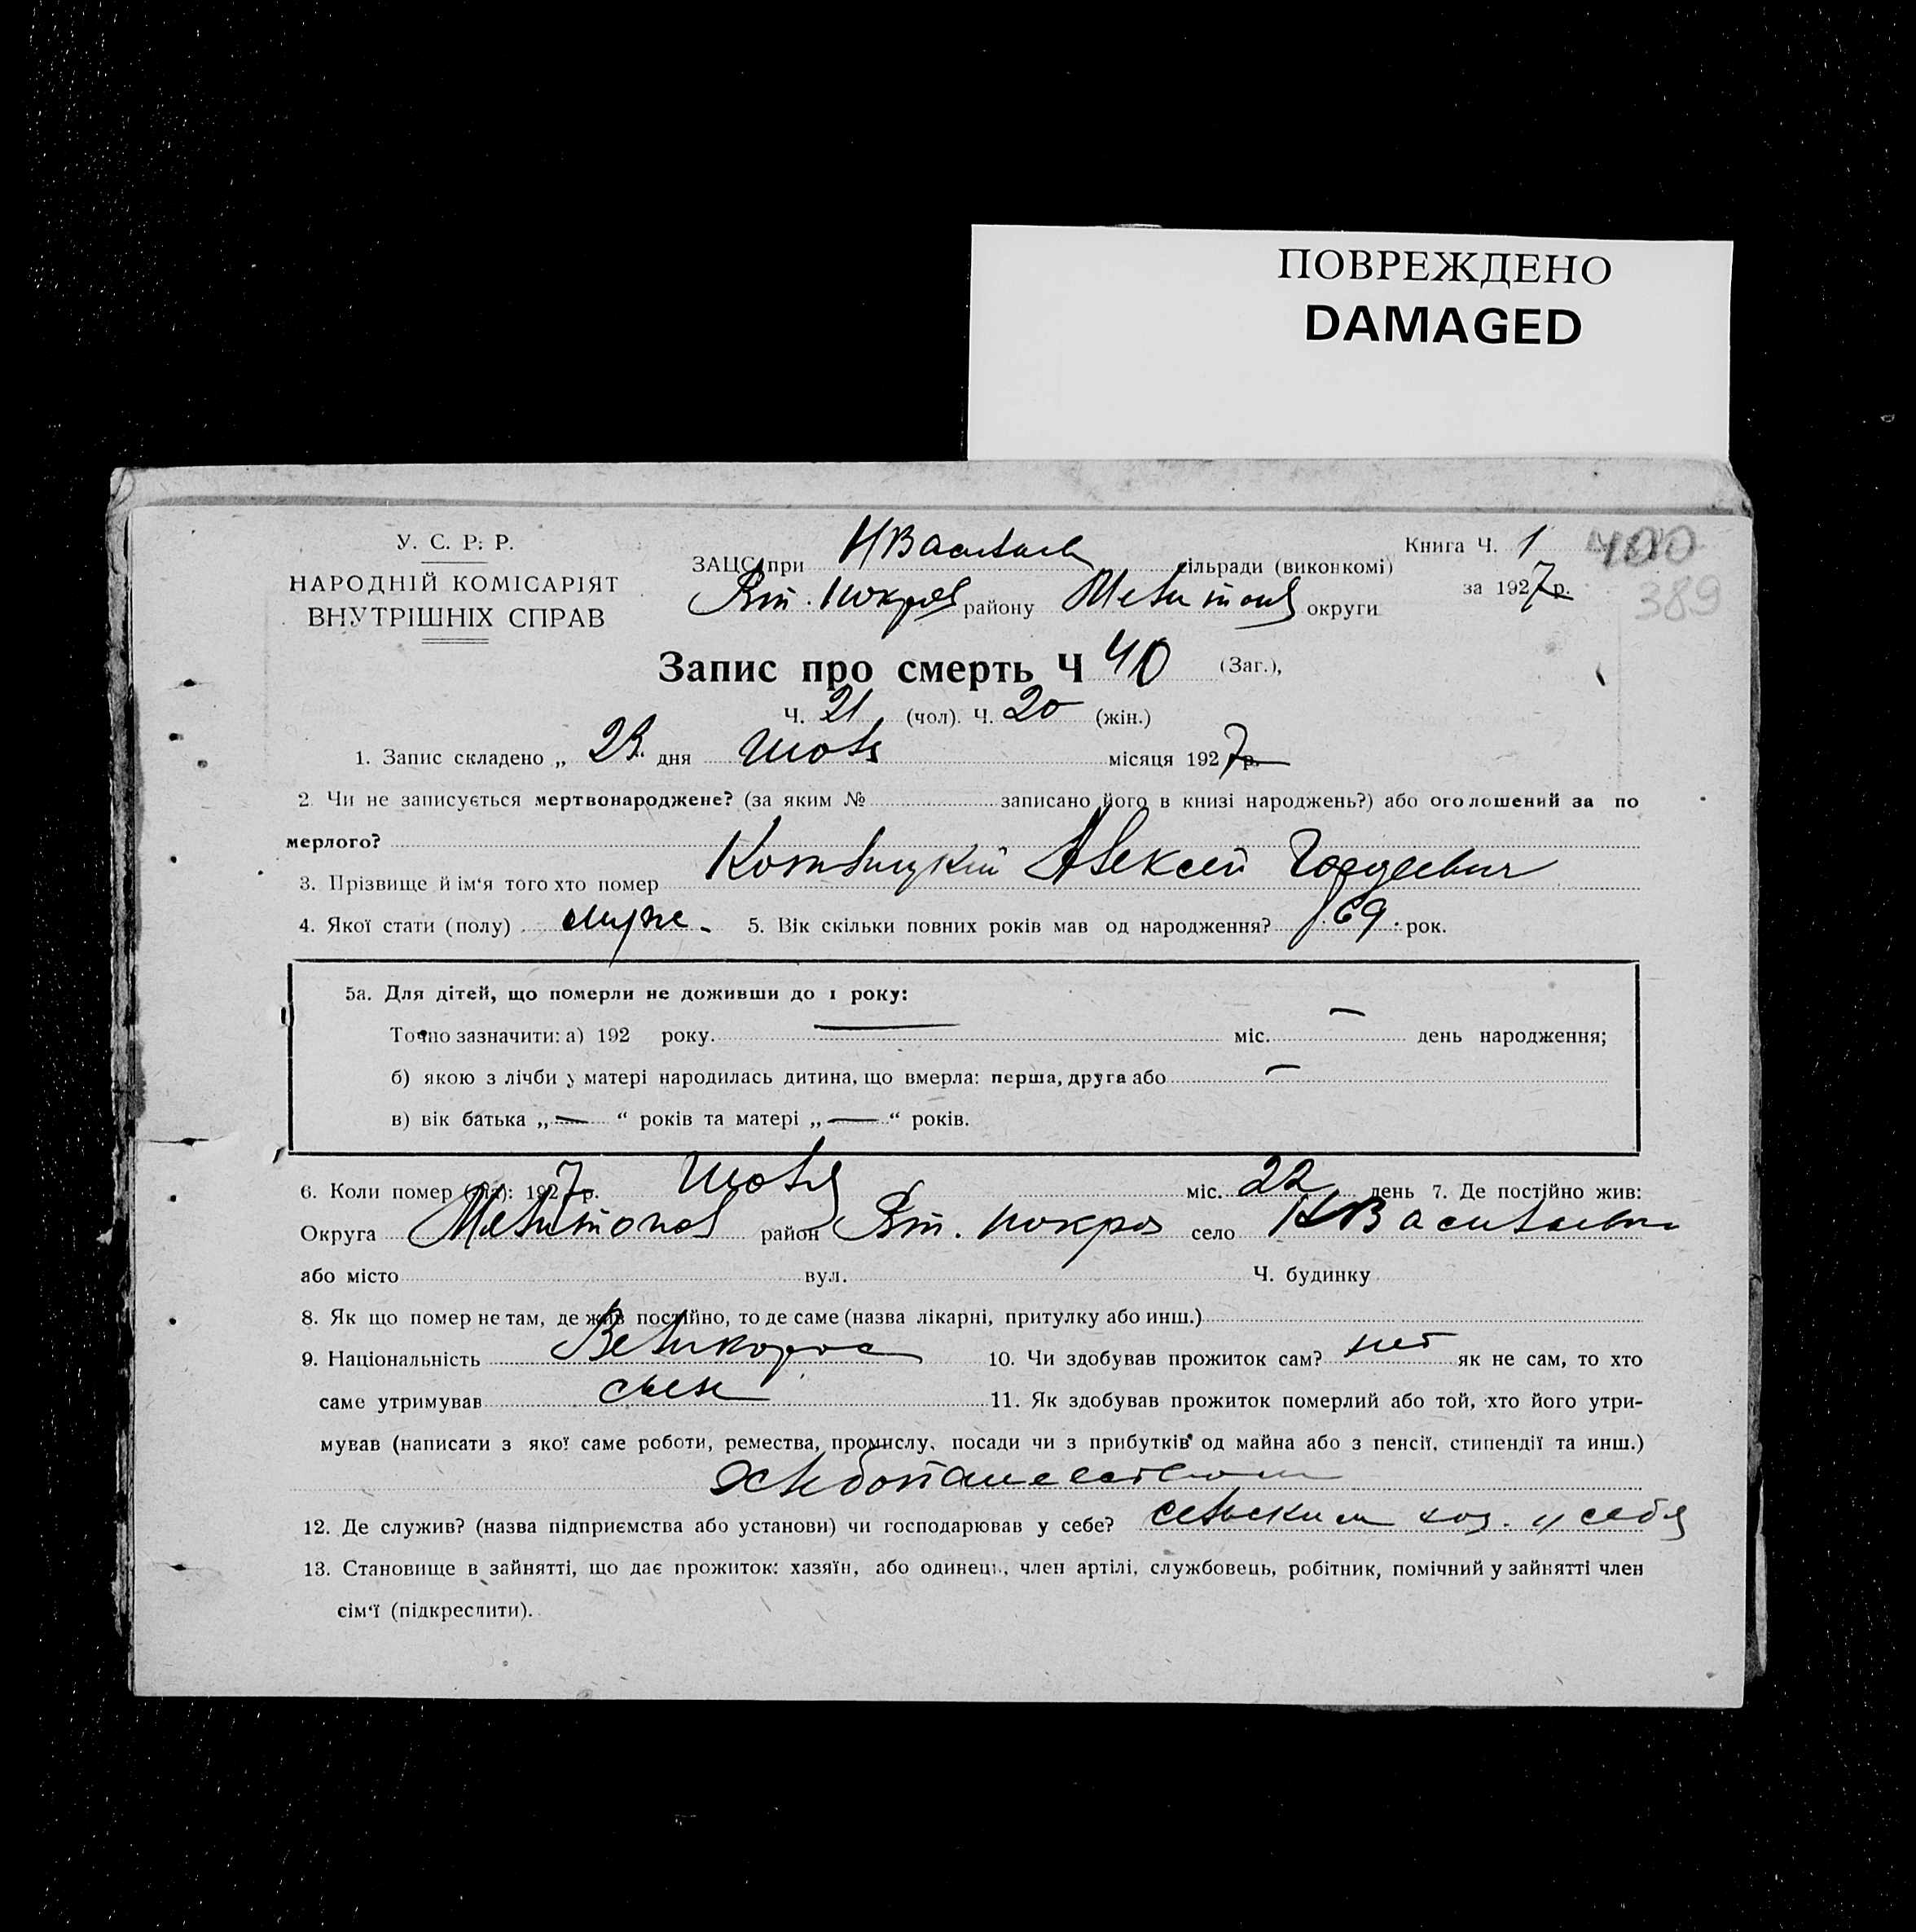 ПОВРЕЖДЕНО
DAMAGED
У. С. Р. Р.
НАРОДНІЙ КОМІСАРІЯТ
ВНУТРІШНІХ СПРАВ
ЗАЦС при НВасильев сільради (виконкомі)
района Мелитопол округи
Книга Ч. 1
за 1927 р.
400
389
Запис про смерть Ч 40 (Заг.),
Ч. 21 (чол). Ч. 20 (жін.)
1. Запис складено „ 23 дня июля місяця 1927 р.
2. Чи не записується мертвонароджене? (за яким № записано його в книзі народжень?) або оголошений за по
мерлого?
3. Прізвище й ім‘я того хто помер Алексей Гордеевич
4. Якої стати (полу) муж. 5. Вік скільки повних років мав од народження? 69 рок.
5а. Для дітей, що померли не доживши до 1 року:
Точно зазначити: а) 192 року. — міс. — день народження;
б) якою з лічби у матері народилась дитина, що вмерла: перша, друга або —
в) вік батька „ — “ років та матері „ — “ років.
6. Коли помер (ла): 1927 р. июля міс. 22 день 7. Де постійно жив:
Округа Мелитопол район Ям. покров село НВасильевка
або місто вул. Ч. будинку
8. Як що помер не там, де жив постійно, то де саме (назва лікарні, притулку або инш.)
9. Національність Великорос 10. Чи здобував прожиток сам? нет як не сам, то хто
саме утримував сын 11. Як здобував прожиток померлий або той, хто його утри-
мував (написати з якої саме роботи, ремества, промислу, посади чи з прибутків од майна або з пенсії, стипендії та инш.)
хлебопашеством
12. Де служив? (назва підприємства або установи) чи господарював у себе? сельским хоз. у себя
13. Становище в зайнятті, що дає прожиток: хазяїн, або одинець, член артілі, службовець, робітник, помічний у зайнятті член
сім‘ї (підкреслити).